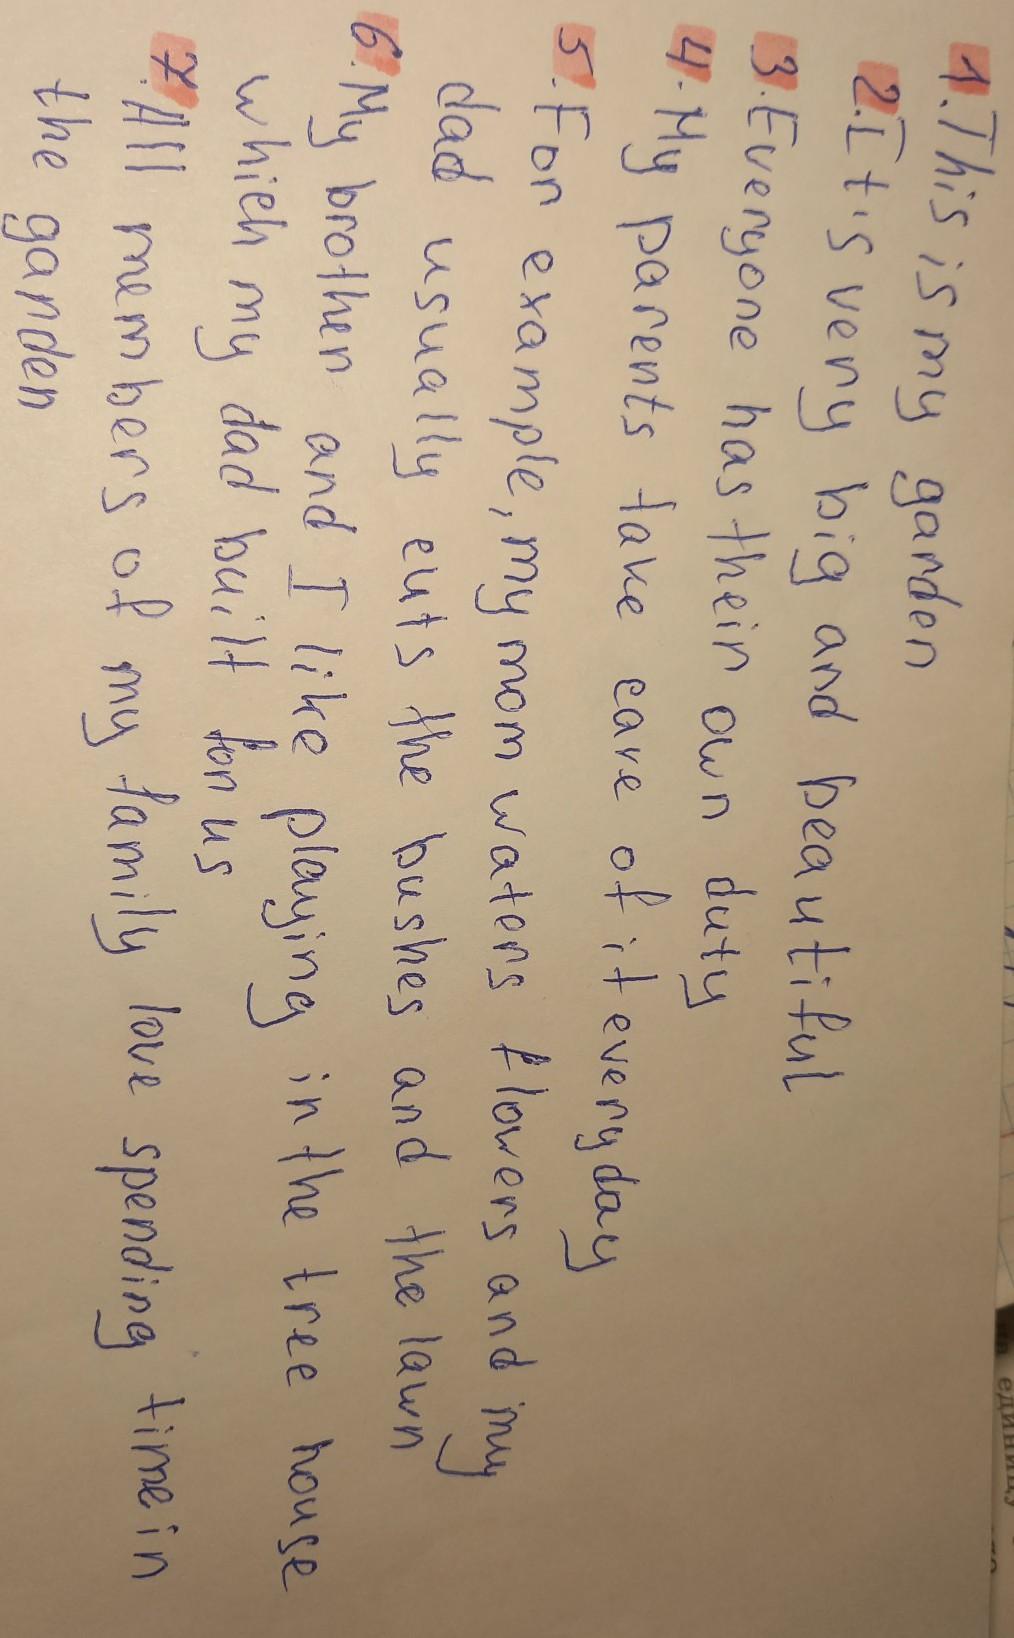 1. This is my garden
2. It is very big and beautiful
3. Everyone has their own duty
4. My parents take care of it everyday
5. For example, my mom waters flowers and my
dad usually cuts the bushes and the lawn
6. My brother and I like playing in the tree house
which my dad built for us
7. All members of my family love spending time in
the garden
единицу